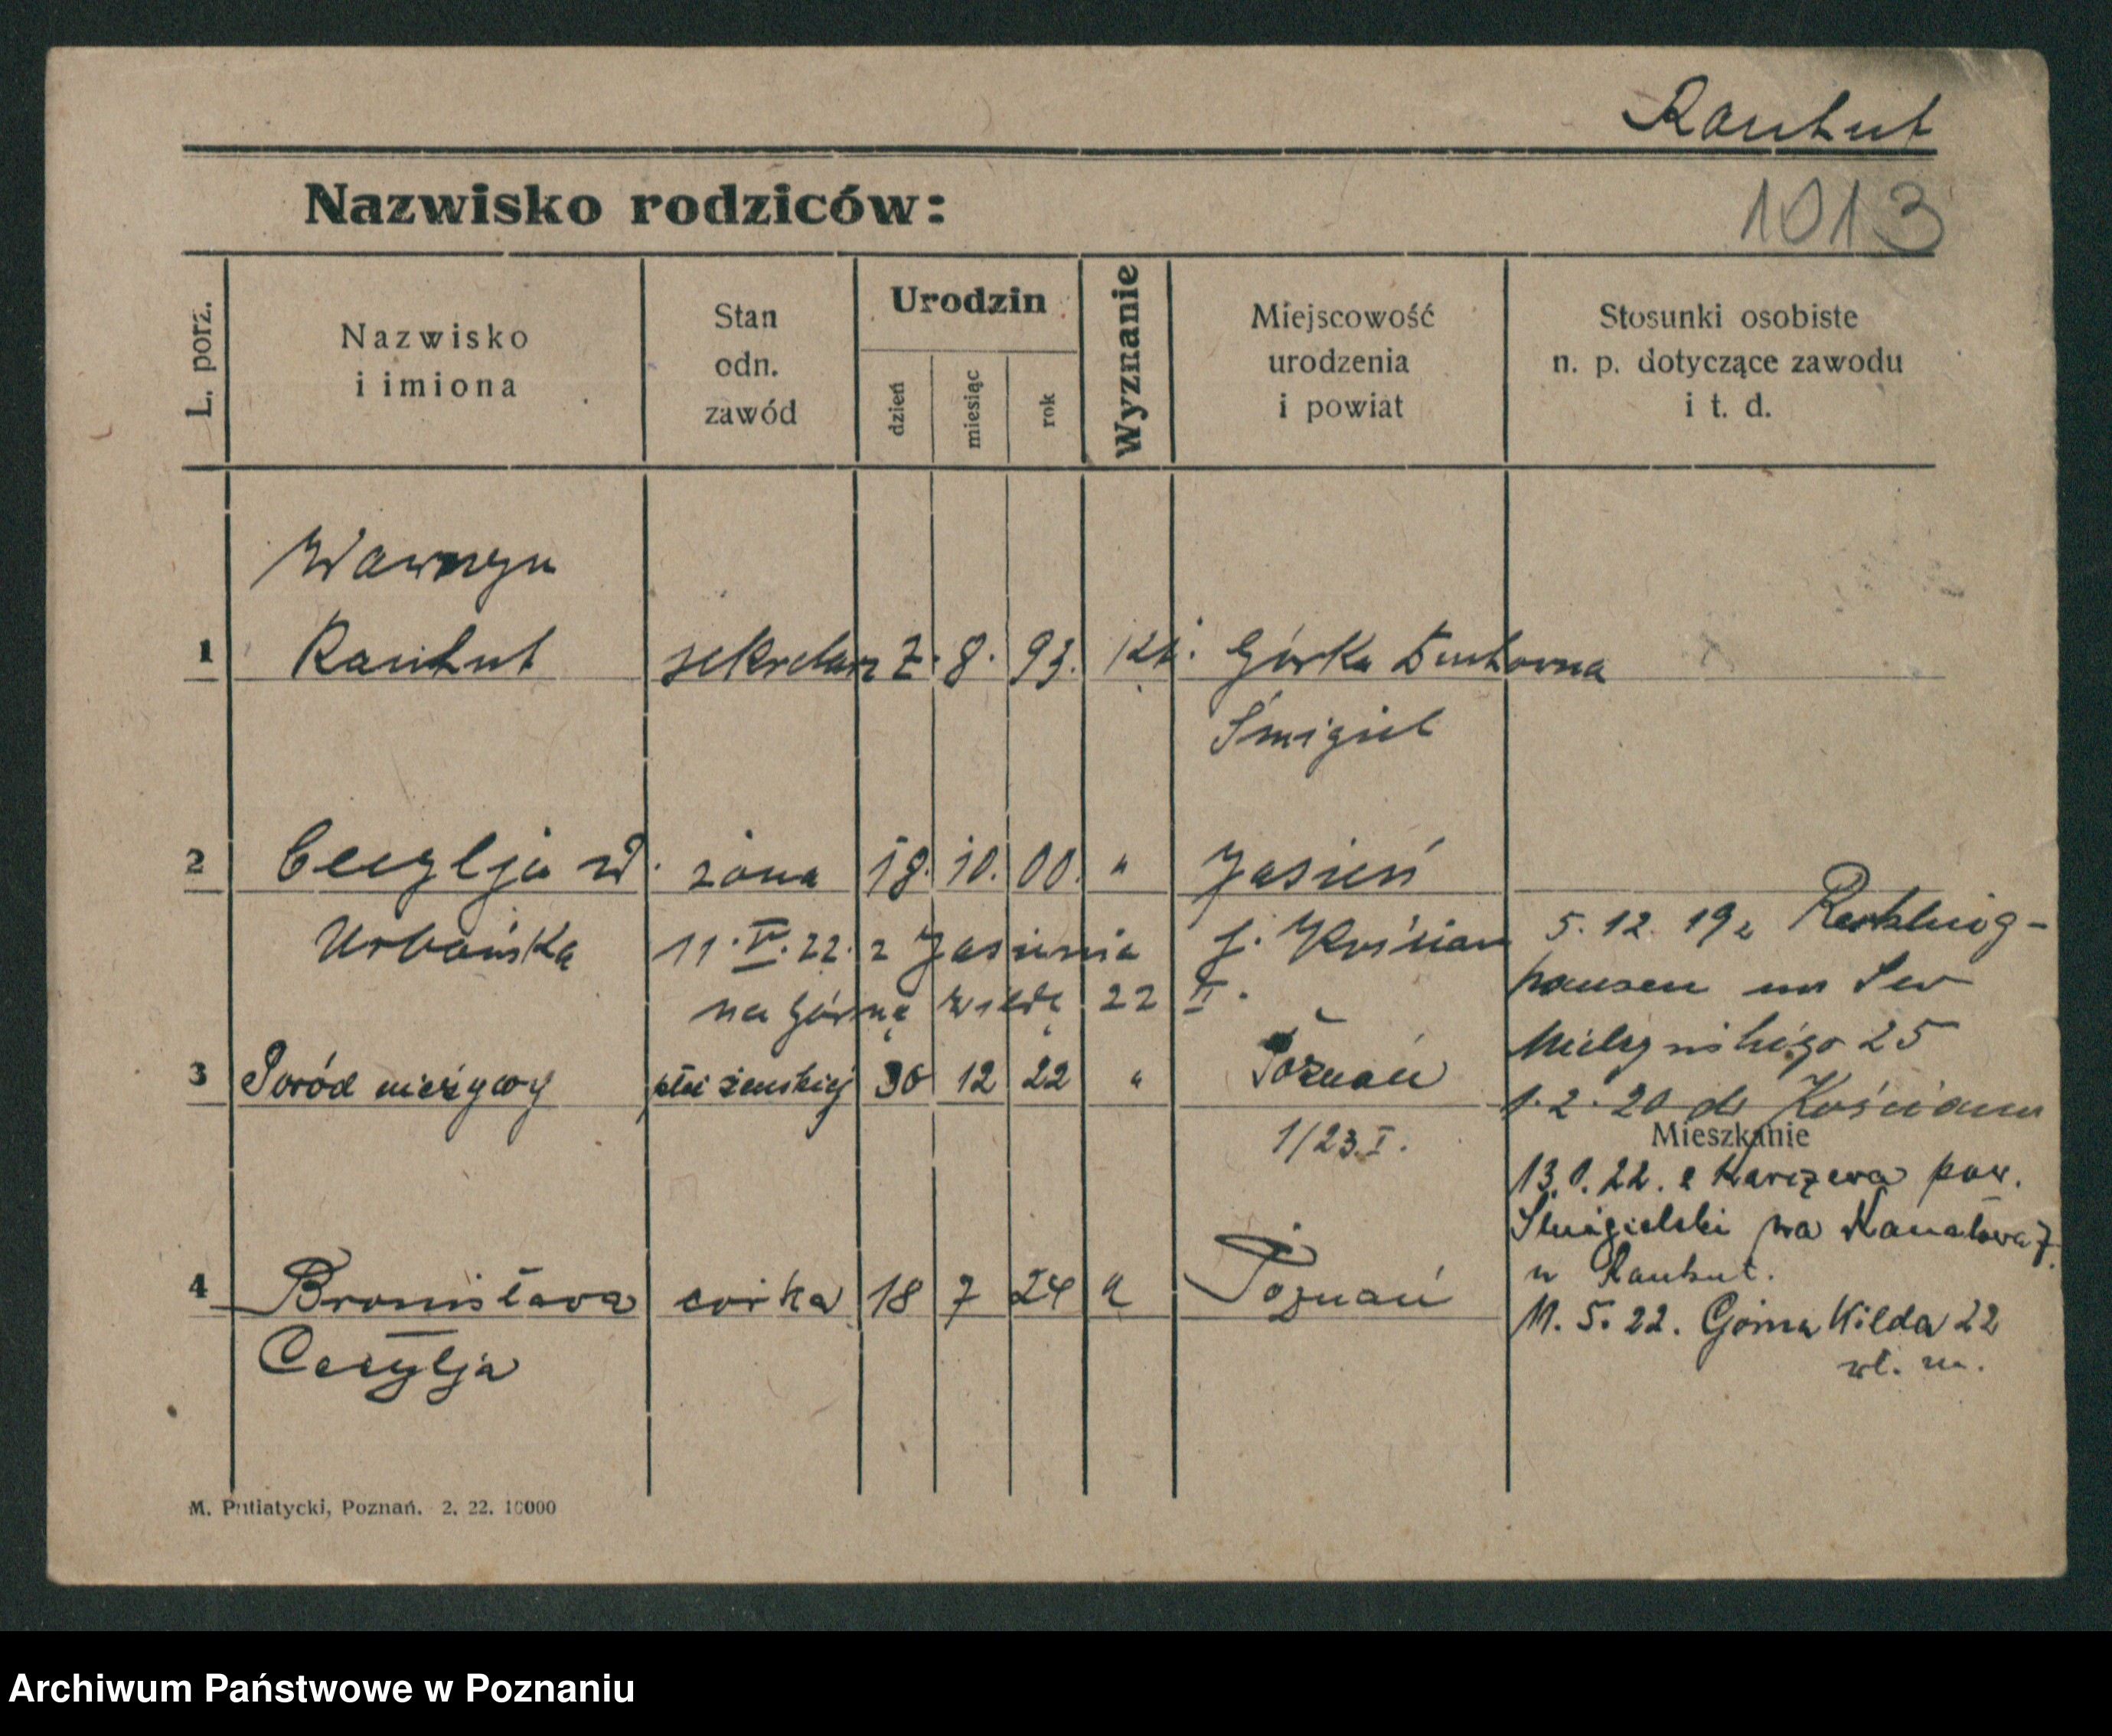 Rauhut
Nazwisko rodziców:
1013
L. porz.
Nazwisko
i imiona
Stan
odn.
zawód
Urodzin
dzień
miesiąc
rok
Wyznanie
Miejscowość
urodzenia
i powiat
Stosunki osobiste
n. p. dotyczące zawodu
i t. d.
Wawrzyn
1 Rauhut sekretarz 7. 8. 93. kt. Górka Duchowna
Śmigiel
2 Cecylja z d. żona 18. 10. 00. " Jasień
Urbańska 11. V. 22. z Jasienia p. Kościan
na Górną Wildę 22 II.
5. 12. 19 z Reckling-
hausen
Mielżyńskiego 25
1. 2. 20 do Kościana
3 Poród nieżywy płci żeńskiej 30 12 22 " Poznań
1/23. I.
Mieszkanie
13. 1. 22. z Karczewa pow.
Śmigielski na Kanałowa 7.
u Rauhut.
11. 5. 22. Górna Wilda 22
wł. m.
4 Bronisława córka 18 7 24 " Poznań
Cecylja
M. Putiatycki, Poznań. 2. 22. 10000
Archiwum Państwowe w Poznaniu